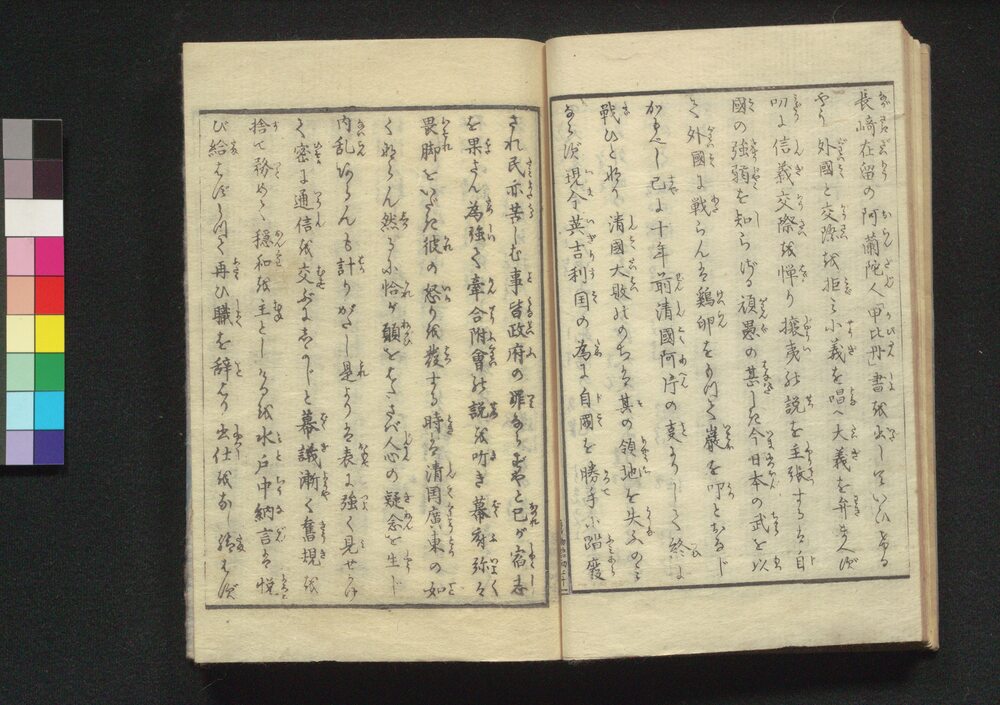 長﨑在留の阿蘭陀人「甲比丹」書を出していひけるは
外國と交際を拒み小義を唱へ大義を弁まへず
叨に信義交際を憚り攘夷の説を主張するは自
國の強弱を知らざる頑愚の甚しき今日本の武を以
て外國に戦らんは鶏卵をもつて巖を叩におなじ
かるべし已に十年前清國阿片の変よりして終に
戰ひとなり清國大敗のちは其の領地を失ふのみ
ならず現今英吉利国の為に自國を勝手に踏廢
され民亦苦しむ事皆政府の罪ならずやと己が宿志
を果さん為強て牽合附會の説を吐き幕府弥々
畏脚をいだき彼の怒りを發する時は清国廣東の如
くならん然るに恰か顛をはさば人心の疑念を生じ
内乱あらんも計りがたし是よりは表に強く見せかけ
く密に通信を交ぶにしかじと幕議漸く舊規を
捨て務めて穏和を主としけるを水戸中納言は悦
び給はずして再ひ職を辞し出仕をなし給はず